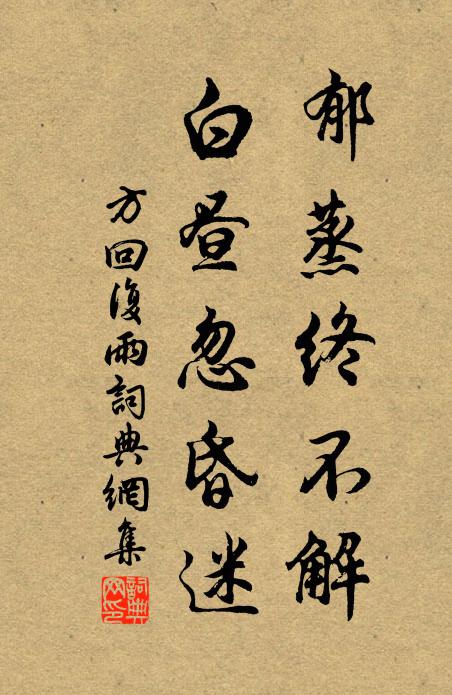 郁蒸终不解
白昼忽昏迷
方回復雨詞典網集
詞典网印